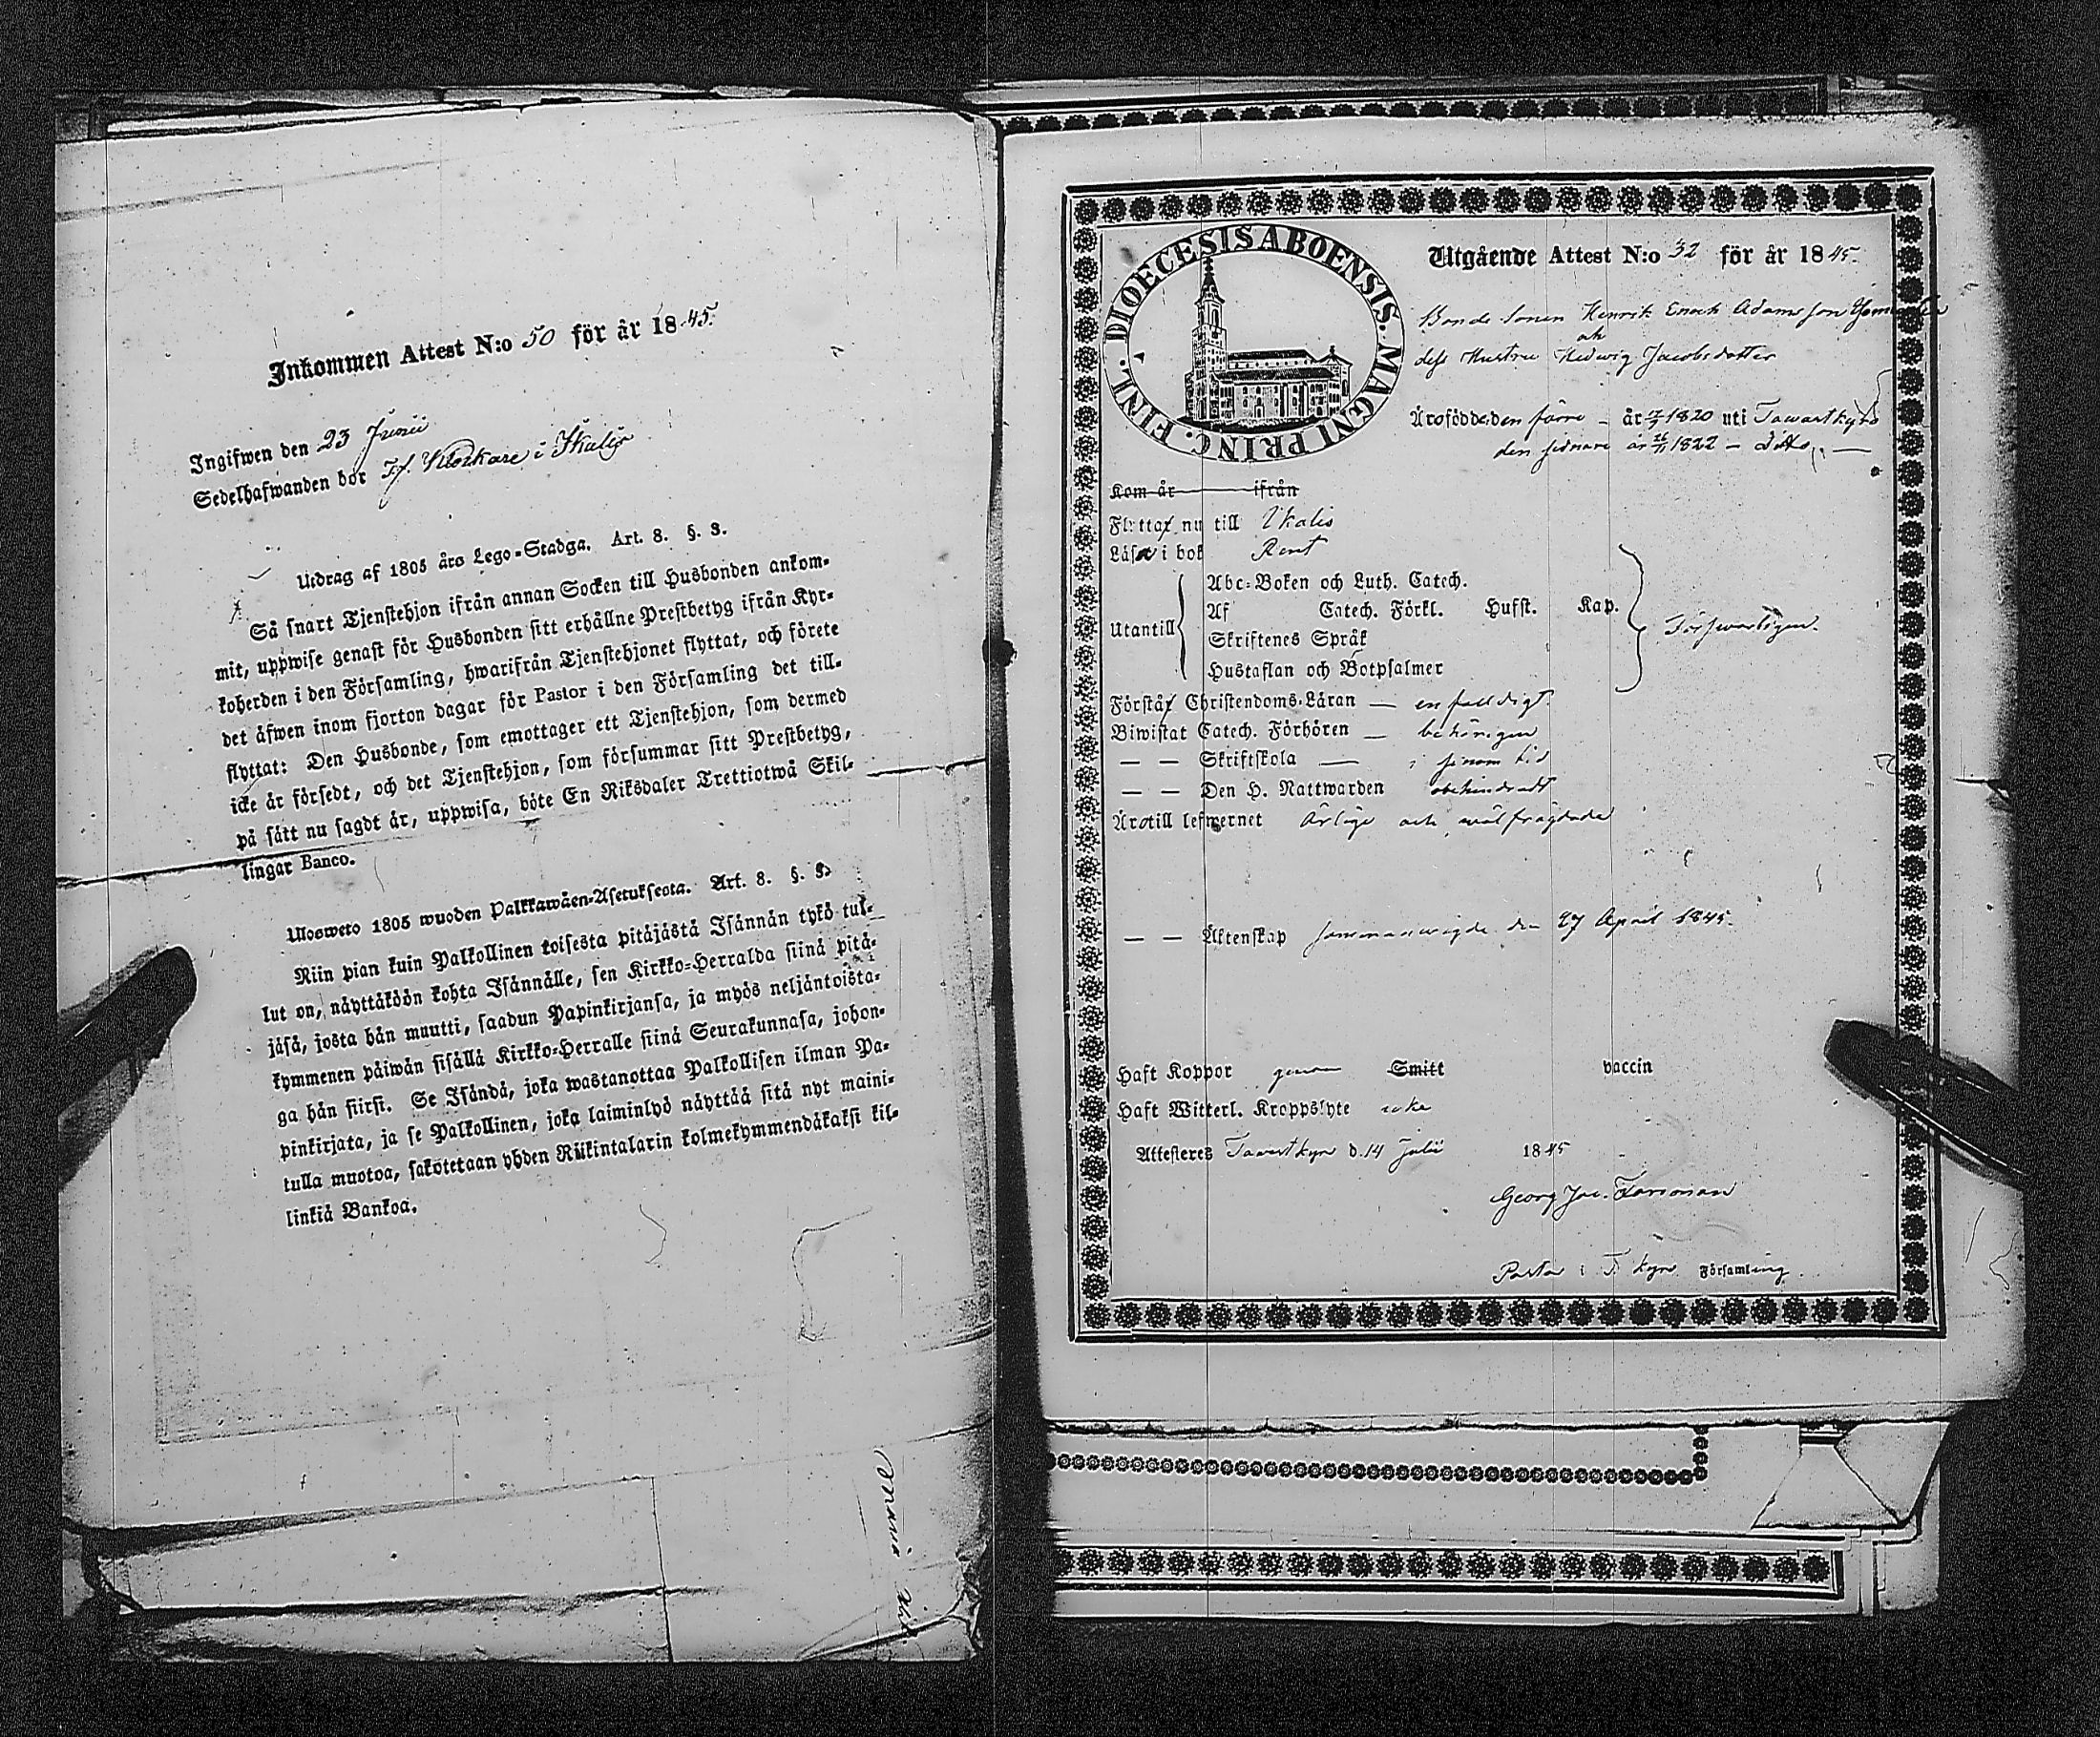 Inkommen Attest N:o 50 för år 1845.
Ingifwen den 23 Junii
Sedelhafwanden bor
Utdrag af 1805 års Lego-Stadga. Art. 8. §. 3.
Så snart Tjenstehjon ifrån annan Socken till Husbonden ankom-
mit, uppwise genast för Husbonden sitt erhållne Prestbetyg ifrån Kyr-
koherden i den Församling, hwarifrån Tjenstehjonet flyttat, och förete
det äfwen inom fjorton dagar för Pastor i den Församling det till-
flyttat: Den Husbonde, som emottager ett Tjenstehjon, som dermed
icke är försedt, och det Tjenstehjon, som försummar sitt Prestbetyg,
på sätt nu sagdt är, uppwisa, böte En Riksdaler Trettiotwå Skil-
lingar Banco.
Ulosweto 1805 wuoden Palkkawäen-Asetuksesta. Art. 8. §. 3.
Niin pian kuin Palkollinen toisesta pitäjästä Isännän tykö tul-
lut on, näyttäköön kohta Isännälle, sen Kirkko-Herralda siinä pitä-
jäsä, josta hän muutti, saadun Papinkirjansa, ja myös neljäntoista-
kymmenen päiwän sisällä Kirkko-Herralle siinä Seurakunnasa, johon-
ga hän siirsi. Se Isändä, joka wastanottaa Palkollisen ilman Pa-
pinkirjata, ja se Palkollinen, joka laiminlyö näyttää sitä nyt maini-
tulla muotoa, sakotetaan yhden Riikintalarin kolmekymmendäkaksi kil-
linkiä Bankoa.
DIOECESIS ABOENSIS. MAGNI PRINC. FINL.
Utgående Attest N:o 32 för år 1845.
Bonde Sonen Henrik Enoch Adamsson
och
dess Hustru Hedwig Jacobsdotter
Äro födde den förre – år 1820 uti Tawastkyro
den sednare år 1822 – Dito
Kom år ifrån
Flyttar nu till Ikalis
Läsa i bok Rent
Utantill
Abc-Boken och Luth. Catech.
Af Catech. Förkl. Husft. Kap.
Skriftenes Språk
Hustaflan och Botpsalmer
Försvarligen.
Förstår Christendoms-Läran — enfaldigt.
Biwistat Catech. Förhören — behörigen
— — Skriftskola — i sinom tid
— — Den H. Nattwarden obehindradt
Äro till lefwernet Ärlige och wälfrägdade
— — Äktenskap sammanwigde den 27 April 1845.
Haft Koppor genom Smitt vaccin
Haft Witterl. Kroppslyte icke
Attesteres Tawastkyro d. 14 Julii 1845
Georg Jac.
Pastor i T. kyro Församling.